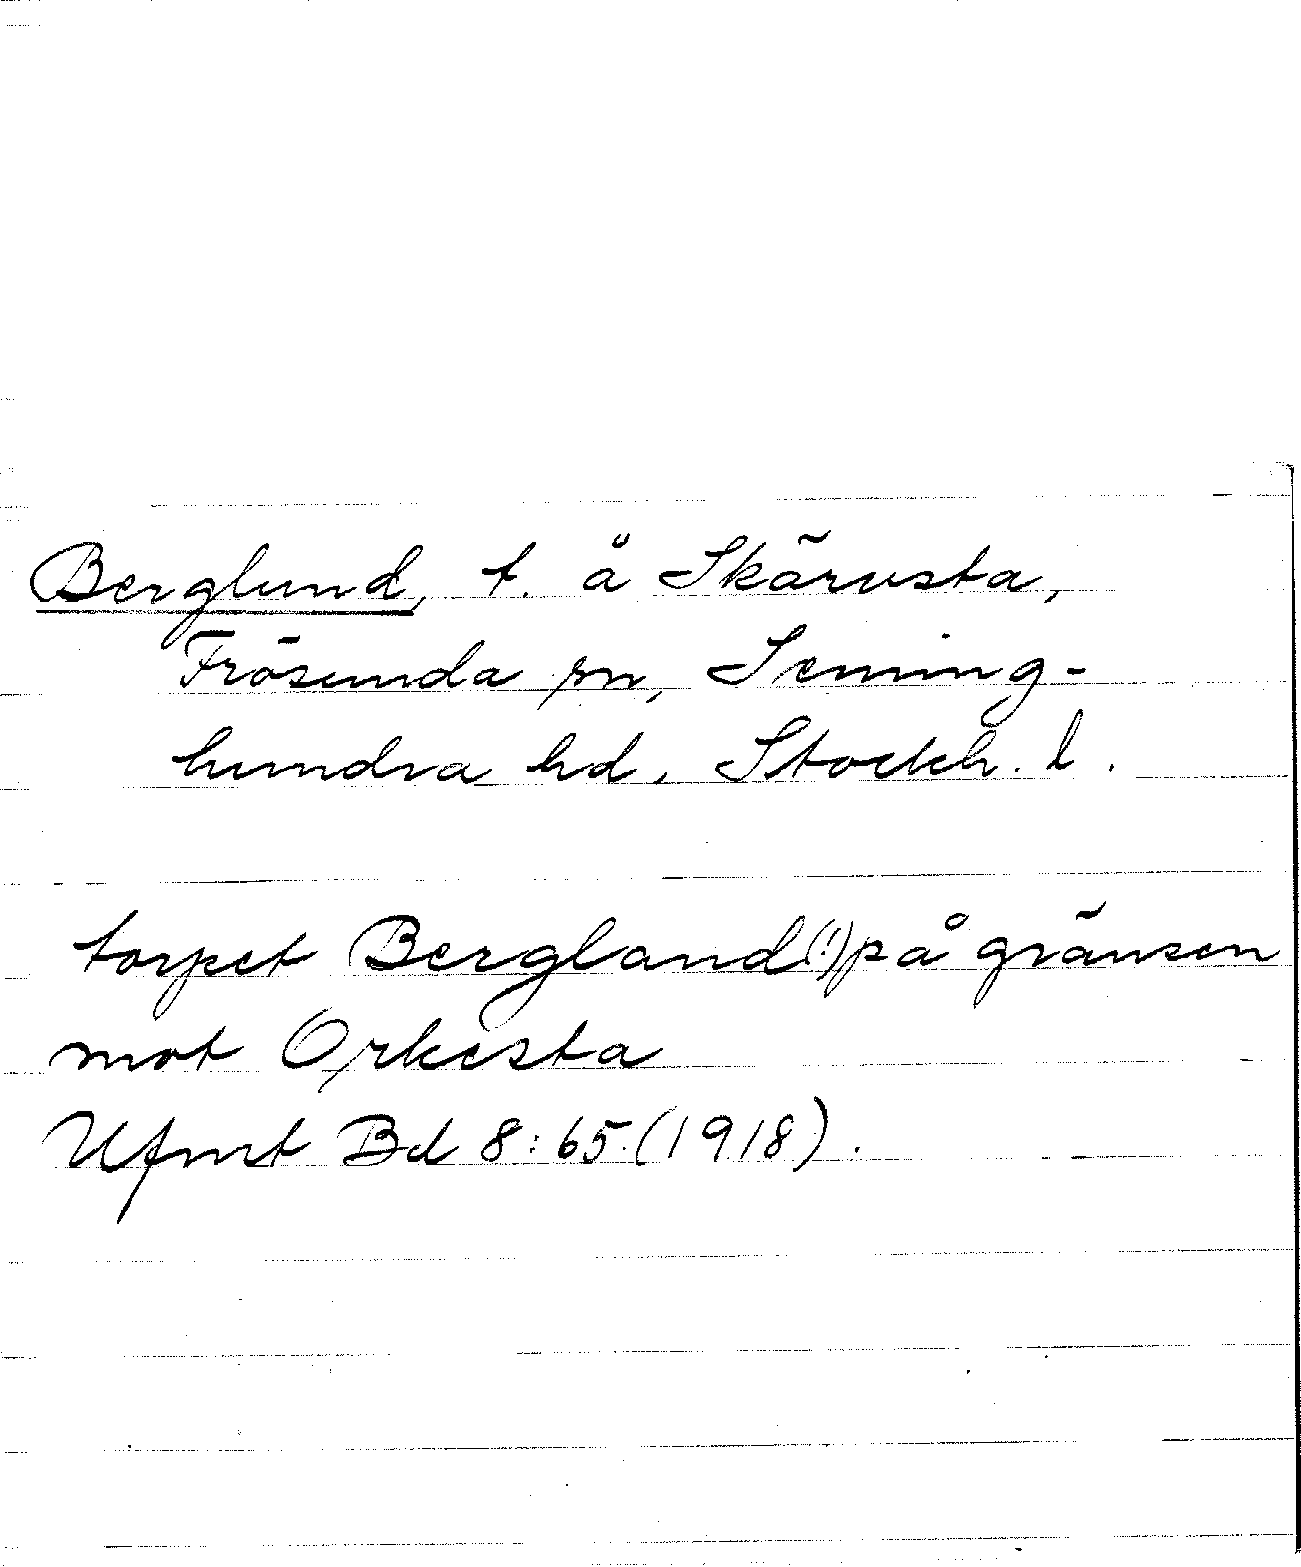 Berglund, t. å Skärvsta,
Frösunda sn, Seming-
hundra hd, Stockh. l.
torpet Bergland(!) på gränsen
mot Orkesta
Ufmt Bd 8:65.(1918).